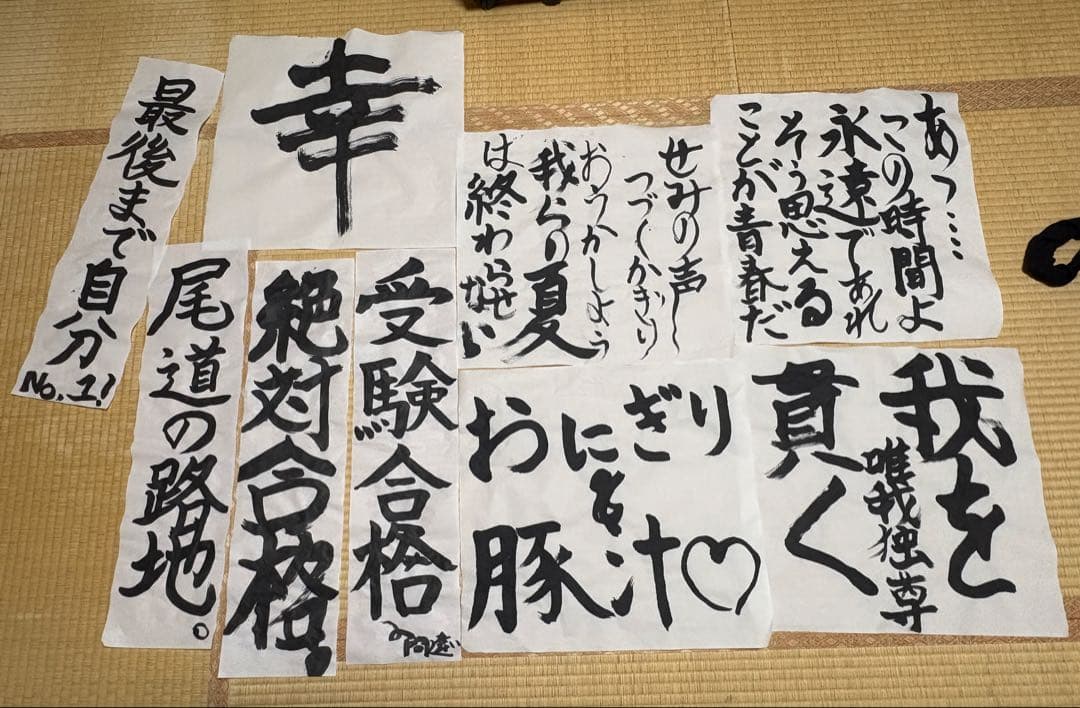 最後まで自分
No.1!
幸
せみの声〜
つづくかぎり
おうかしよう
我らの夏
は終わらせ
ない
あっ‥‥
この時間よ
永遠であれ
そう思える
ことが青春だ
尾道の路地。
絶対合格!
受験合
おにぎり
豚汁♡
我を
唯我独尊
貫く